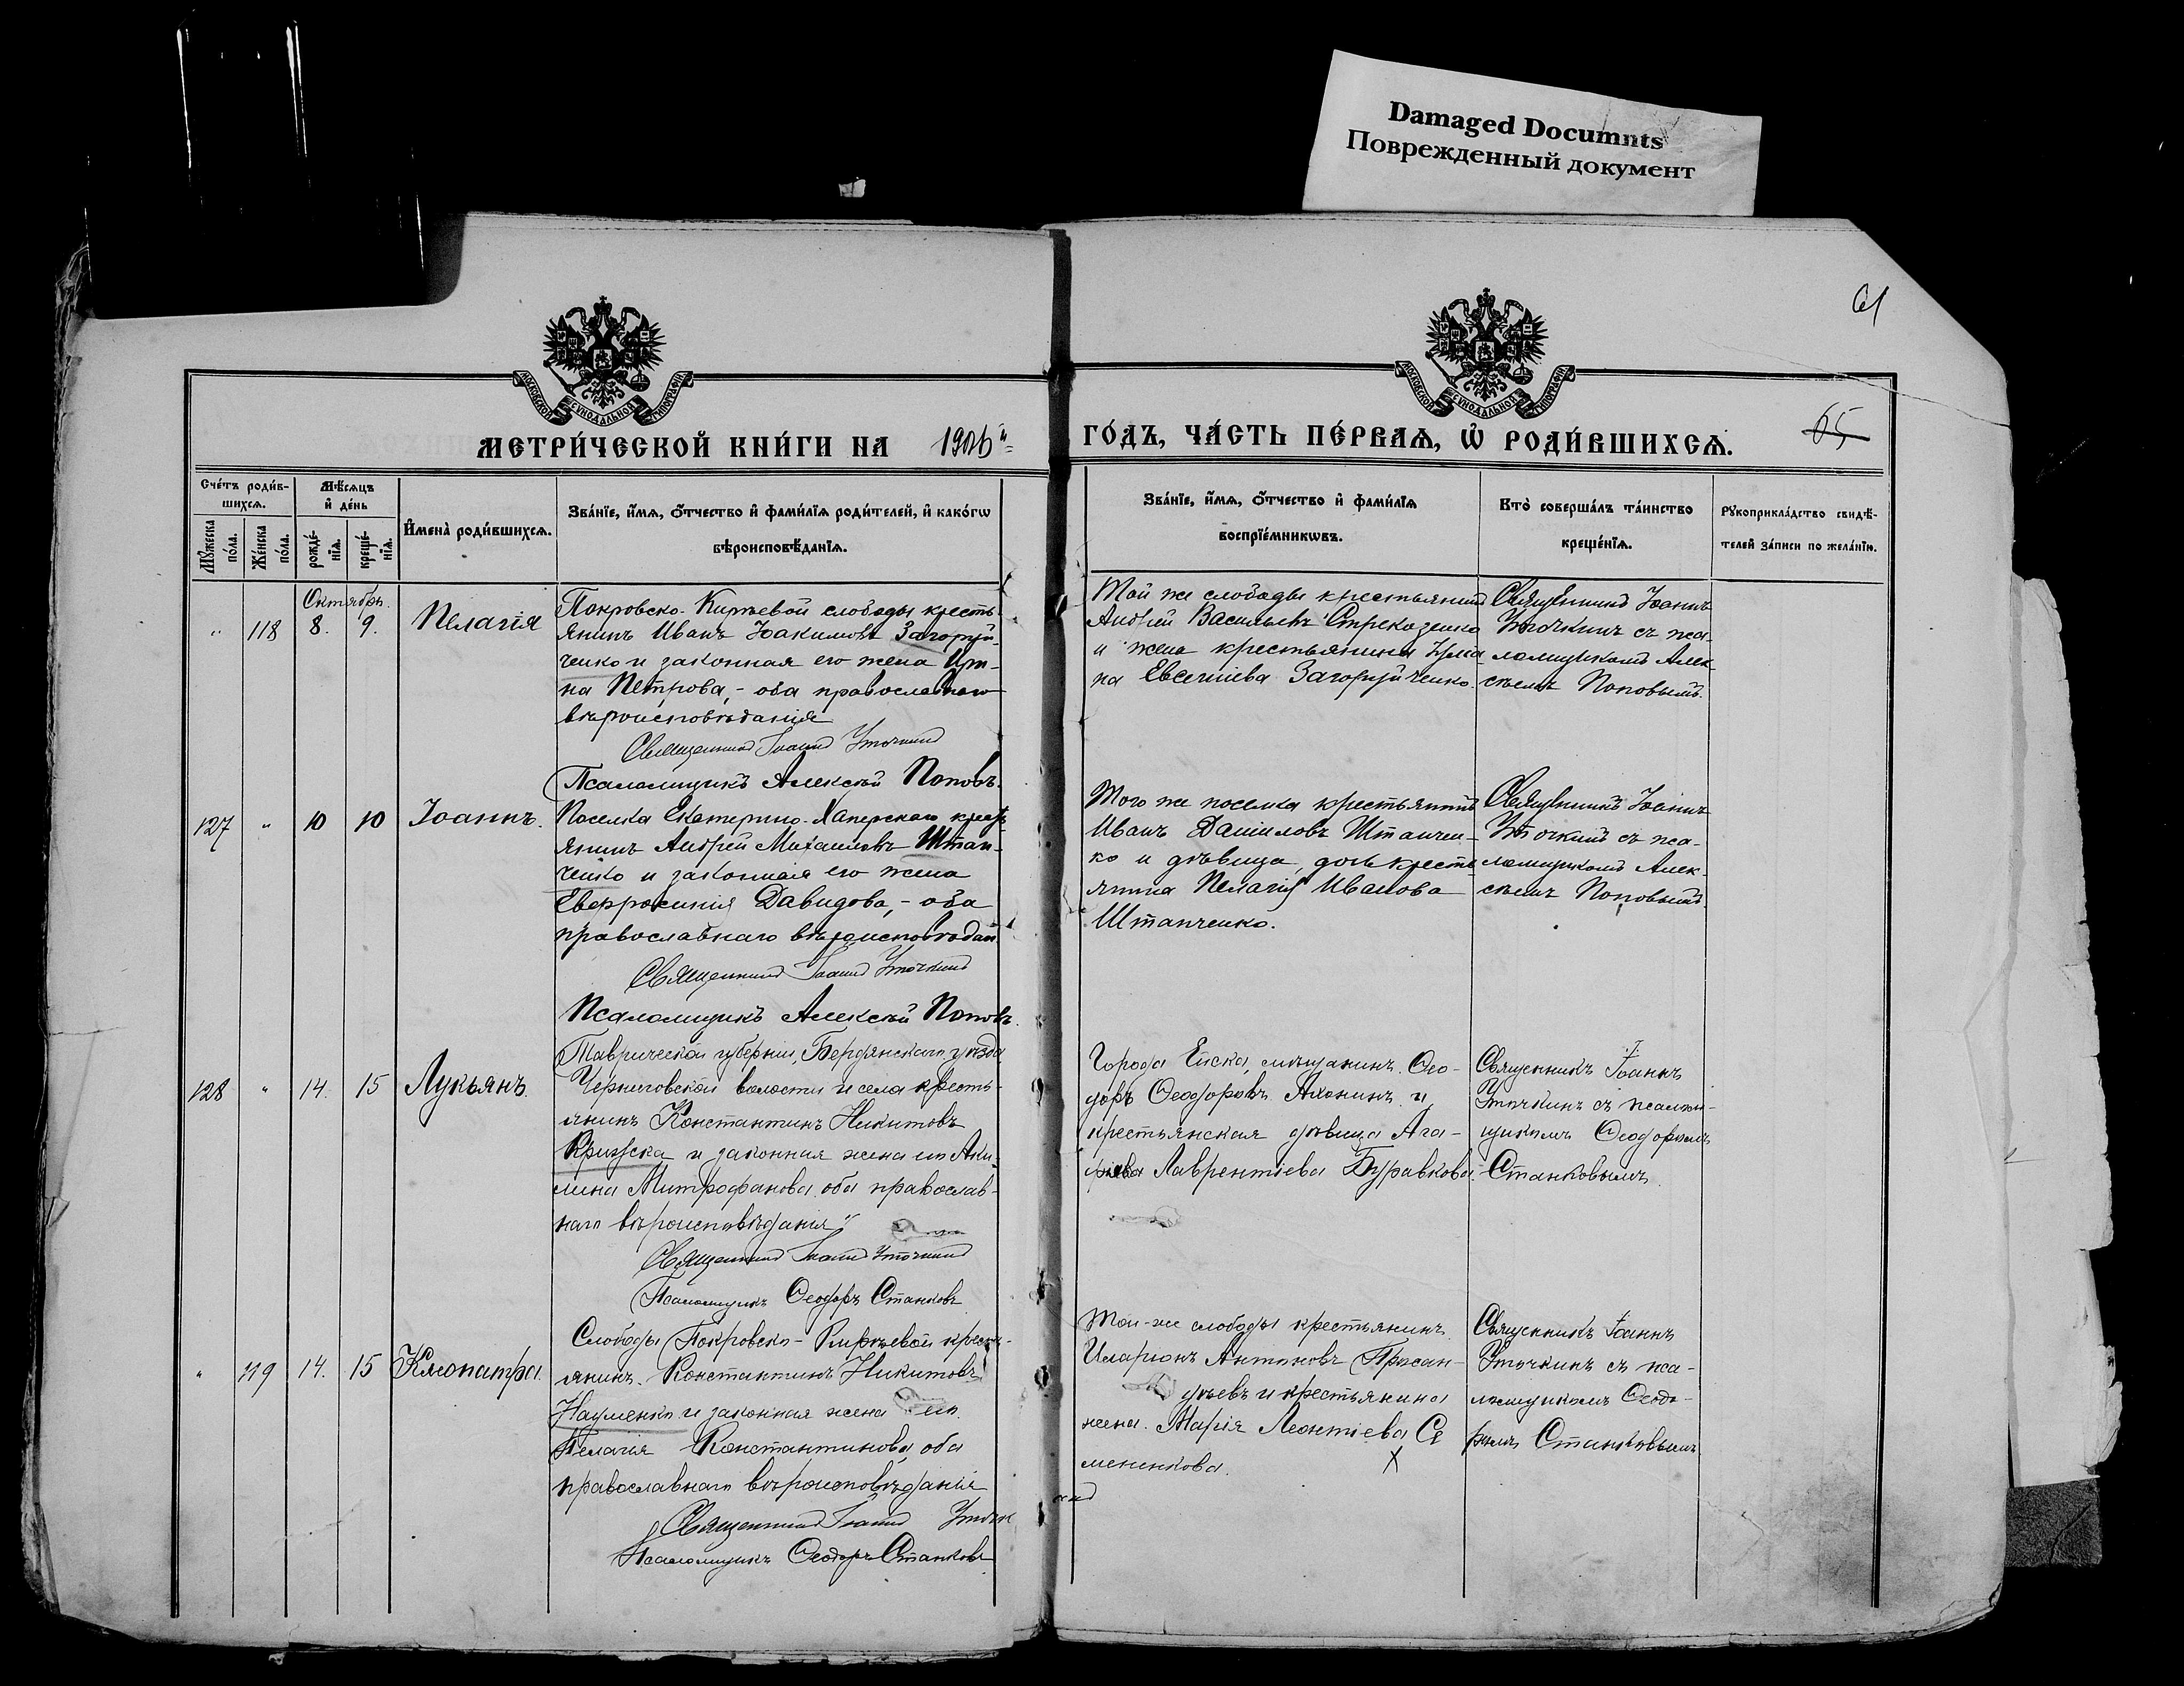 Damaged Documnts
Поврежденный документ
61
МОСКОВСКОЙ СУНОДАЛЬНОЙ ТИПОГРАФІИ
МОСКОВСКОЙ СУНОДАЛЬНОЙ ТИПОГРАФІИ
МЕТРИ́ЧЕСКОЙ КНИ́ГИ НА 1906й
ГО́ДЪ, ЧА́СТЬ ПЕ́РВАѦ, Ѡ҆ РОДИ́ВШИХСѦ.
65
Сче́тъ роди́в-
шихсѧ.
Мꙋ́жеска по́ла.
Же́нска по́ла.
Мѣ́сѧцъ
и҆ де́нь
рожде́-
нїѧ.
креще́-
нїѧ.
И҆мена̀ роди́вшихсѧ.
Зва́нїе, и҆́мѧ, ѻ҆́тчество и҆ фами́лїѧ роди́телей, и҆ како́гѡ
вѣроисповѣ́данїѧ.
Зва́нїе, и҆́мѧ, ѻ҆́тчество и҆ фами́лїѧ
воспрїе́мникѡвъ.
Кто̀ соверша́лъ та́инство
креще́нїѧ.
Рꙋкоприкла́дство свидѣ́-
телей за́писи по жела́нїю.
Октябрь.
" 118 8. 9. Пелагія
Покровско-Киреевой слободы кресть-
янинъ Иванъ Іоакимовъ Загоруй-
ченко и законная его жена Ири-
на Петрова, - оба православнаго
вѣроисповѣданія
Священникъ Іоаннъ Уточкинъ
Псаломщикъ Алексѣй Поповъ.
Той же слободы крестьянинъ
Андрей Васильевъ Стрекозенко
и жена крестьянина
на Евсегніева Загоруйченко.
Священникъ Іоаннъ
Уточкинъ съ пса-
ломщикомъ Алек-
сѣемъ Поповымъ.
127 " 10 10 Іоаннъ.
Поселка Екатерино-Хаперскаго крест
янинъ Андрей Михаиловъ Штан-
ченко и законная его жена
Евфросинія Давидова, - оба
православнаго вѣроисповѣдан.
Священникъ Іоаннъ Уточкинъ
Псаломщикъ Алексѣй Поповъ.
Того же поселка крестьянинъ
Иванъ Даниловъ Штанчен-
ко и дѣвица, дочь кресть
янина Пелагія Иванова
Штанченко.
Священникъ Іоаннъ
Уточкинъ съ пса-
ломщикомъ Алек-
сѣемъ Поповымъ.
128 " 14. 15 Лукьянъ.
Таврической губерніи, Бердянскаго уѣзда
Черниговской волости и села кресть-
янинъ Константинъ Никитовъ
и законная жена его Аки-
лина Митрофанова оба православ-
наго вѣроисповѣданія"
Священникъ Іоаннъ Уточкинъ
Псаломщикъ Ѳеодоръ Станковъ
Города Ейска, мѣщанинъ Ѳео-
доръ Ѳеодоровъ Аханинъ и
крестьянская дѣвица Ага-
Лаврентіева Буравкова.
Священникъ Іоаннъ
Уточкинъ съ псалом-
щикомъ Ѳеодоромъ
Станковымъ.
" 119 14. 15 Клеопатра.
Слободы Покровско-Кирѣевой кресть-
янинъ Константинъ Никитовъ
Науменко и законная жена его
Пелагія Константинова, оба
православнаго вѣроисповѣданія
Священникъ Іоаннъ Уточкинъ
Псаломщикъ Ѳеодоръ Станковъ
Той-же слободы крестьянинъ
Иларіонъ Антоновъ
и крестьянина
жена Марія Леонтіева Се
мененкова.
Священникъ Іоаннъ
Уточкинъ съ пса-
ломщикомъ Ѳеодо-
ромъ Станковымъ